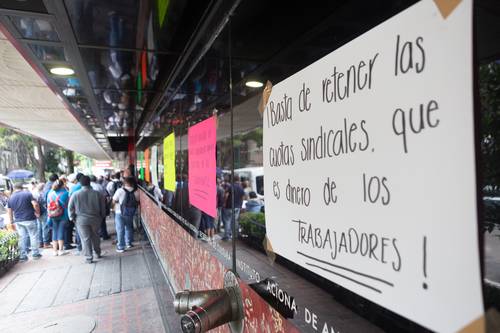 ¡Basta de retener las
cuotas sindicales, que
es dinero de los
TRABAJADORES!
INSTITUTO
ACIONA DE AN